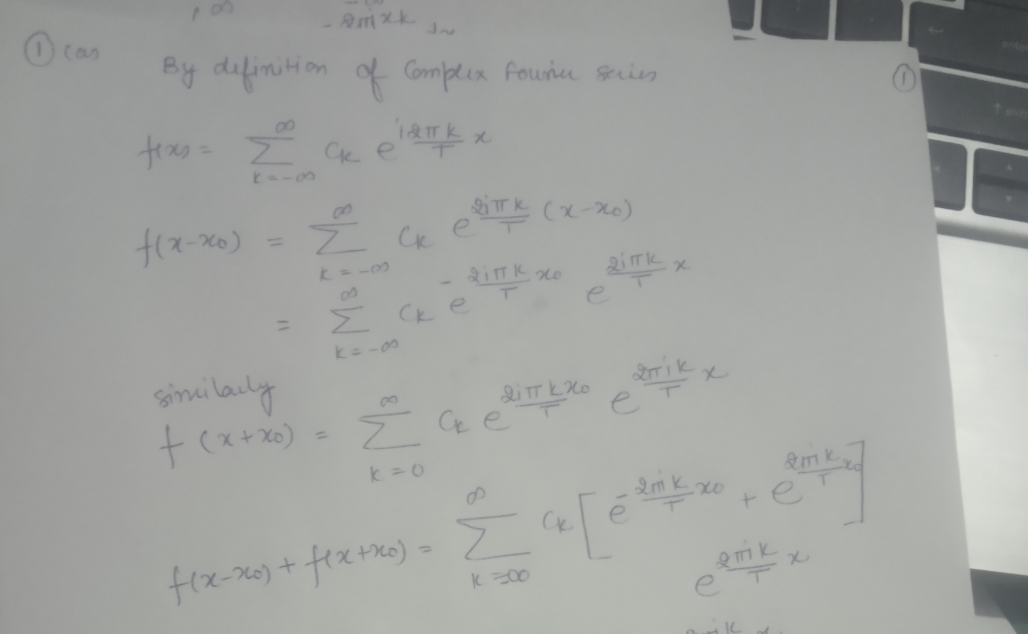 ① (a)
By definition of Complex Fourier Series ①
f(x) = ∑_{k=-∞}^{∞} C_k e^{i2πk/T x}
f(x-x₀) = ∑_{k=-∞}^{∞} C_k e^{2iπk/T (x-x₀)}
= ∑_{k=-∞}^{∞} C_k e^{-2iπk/T x₀} e^{2iπk/T x}
similarly
f(x+x₀) = ∑_{k=0}^{∞} C_k e^{2iπkx₀/T} e^{2πik/T x}
f(x-x₀) + f(x+x₀) = ∑_{k=-∞}^{∞} C_k [e^{-2πik/T x₀} + e^{2πik/T x₀}]
e^{2πik/T x}